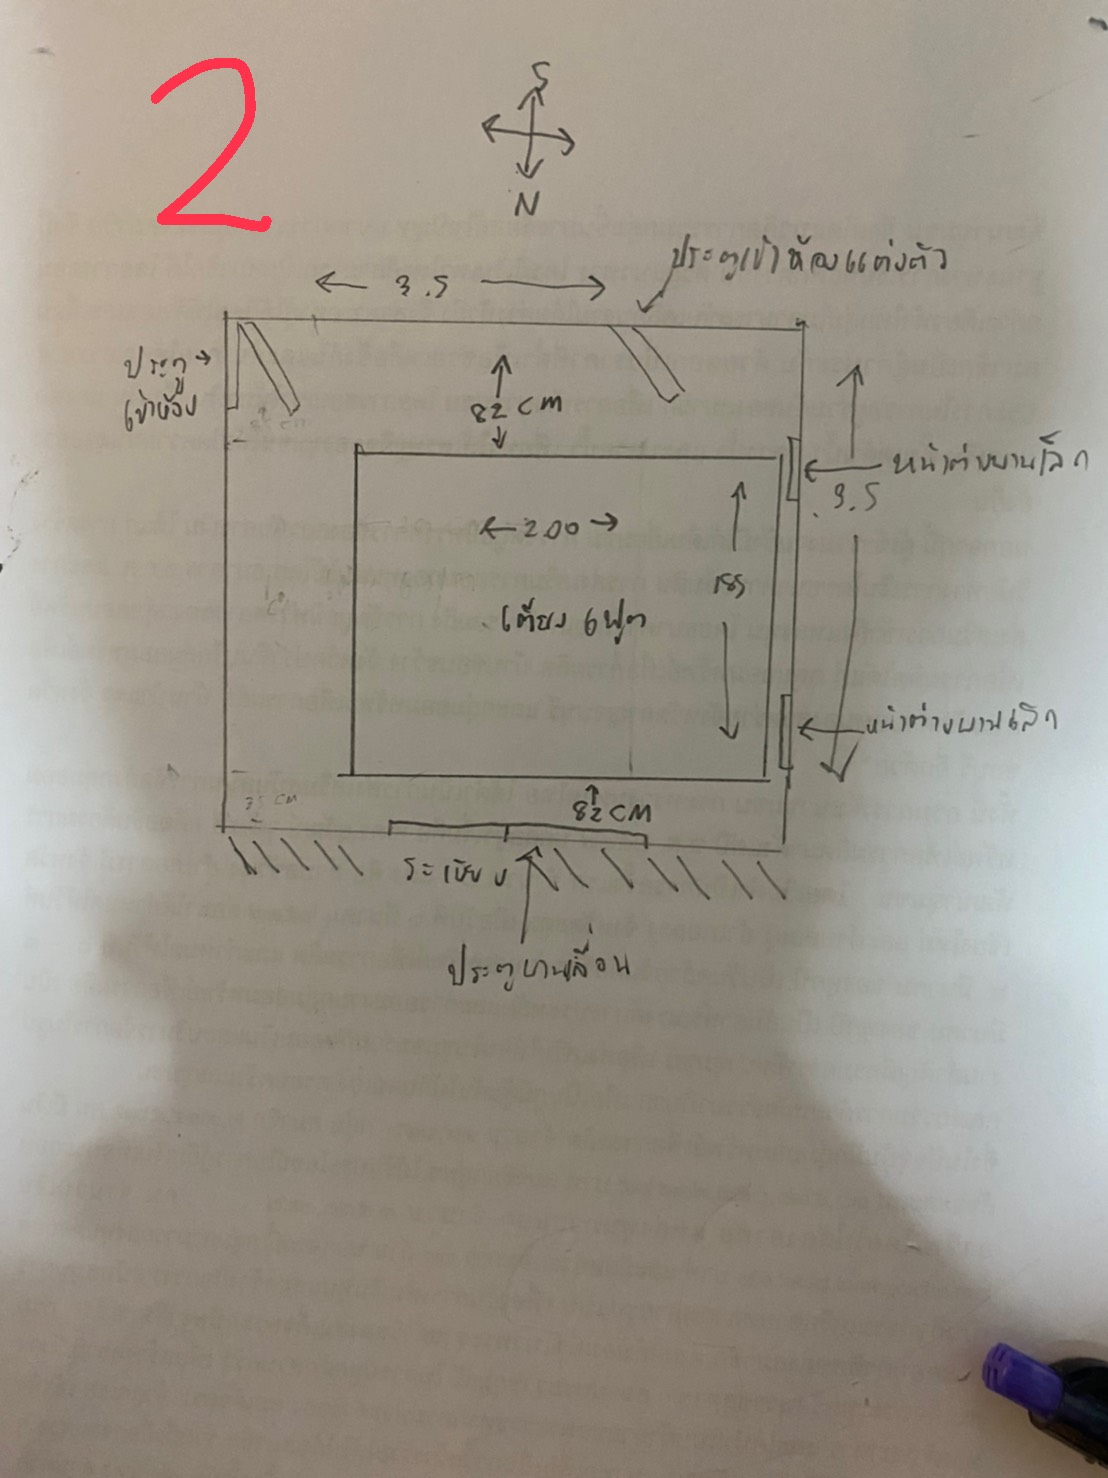 2
S
N
ประตูเข้าห้องแต่งตัว
3.5
ประตู
เข้าห้อง
82 CM
หน้าต่างบานเล็ก
3.5
2.00
185
เตียง 6 ฟุต
หน้าต่างบานเล็ก
82 CM
ระเบียง
ประตูบานเลื่อน